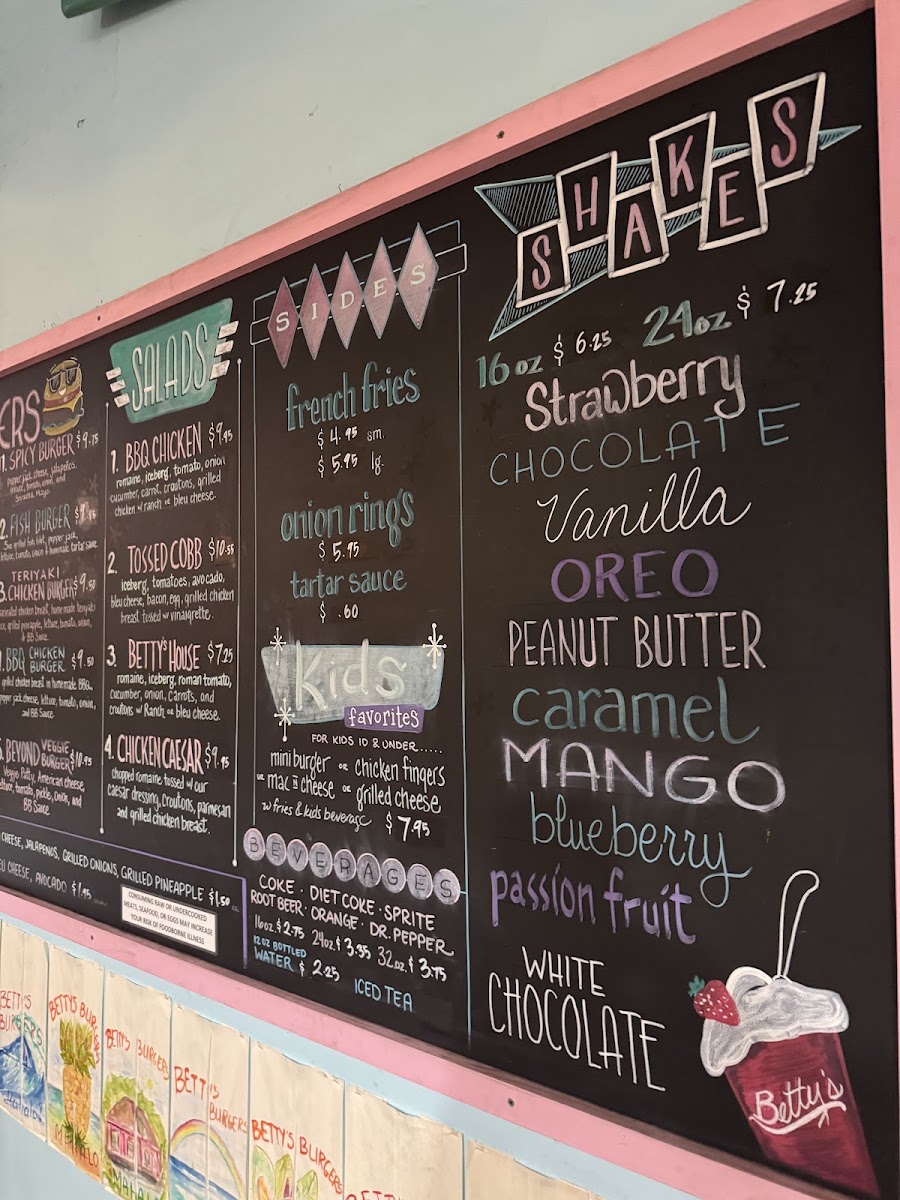 ERS
1. SPICY BURGER $9.75
pepper jack cheese, jalapeños,
lettuce, tomato, onion, and
Sriracha Mayo.
2. FISH BURGER
lettuce, tomato, onion & homemade tartar sauce
3. TERIYAKI
CHICKEN BURGER $9.50
marinated chicken breast, homemade teriyaki
sauce, grilled pineapple, lettuce, tomato, onion,
& BB Sauce
BBQ CHICKEN
BURGER $9.50
grilled chicken breast w/ homemade BBQ,
pepper jack cheese, lettuce, tomato, onion,
and BB Sauce
5. BEYOND VEGGIE
BURGER $10.95
Veggie Patty, American cheese,
lettuce, tomato, pickle, onion, and
BB Sauce
CHEESE, JALAPENOS, GRILLED ONIONS, GRILLED PINEAPPLE $1.50
CHEESE, AVOCADO $1.95
CONSUMING RAW OR UNDERCOOKED
MEATS, SEAFOOD, OR EGGS MAY INCREASE
YOUR RISK OF FOODBORNE ILLNESS
SALADS
1. BBQ CHICKEN $9.95
romaine, iceberg, tomato, onion
cucumber, carrot, croutons, grilled
chicken w/ ranch or bleu cheese.
2. TOSSED COBB $10.55
iceberg, tomatoes, avocado,
bleu cheese, bacon, egg, grilled chicken
breast tossed w/ vinaigrette.
3. BETTY'S HOUSE $7.25
romaine, iceberg, roman tomato,
cucumber, onion, carrots, and
croutons w/ Ranch or bleu cheese.
4. CHICKEN CAESAR $9.95
chopped romaine tossed w/ our
caesar dressing, croutons, parmesan
and grilled chicken breast.
SIDES
french fries
$4.95 sm.
$5.95 lg.
onion rings
$5.95
tartar sauce
$ .60
Kids
favorites
FOR KIDS 10 & UNDER.....
mini burger or chicken fingers
or mac n cheese or grilled cheese
w/ fries & kids beverage $7.95
BEVERAGES
COKE · DIET COKE · SPRITE
ROOT BEER · ORANGE · DR. PEPPER
16oz $2.75 24oz $3.35 32oz. $3.75
12 OZ BOTTLED
WATER $2.25
ICED TEA
SHAKES
16 oz $6.25 24 oz $7.25
Strawberry
CHOCOLATE
Vanilla
OREO
PEANUT BUTTER
caramel
MANGO
blueberry
passion fruit
WHITE
CHOCOLATE
Betty's
BETTY'S
BURGERS
BETTY'S BURGERS
MAHALO
BETTY'S BURGERS
BETTY'S
BURGERS
BETTY'S BURGERS